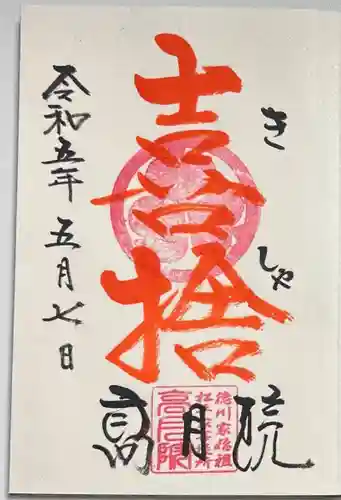 きしゃ
喜捨
令和五年五月七日
高月院
高月院
徳川家始祖